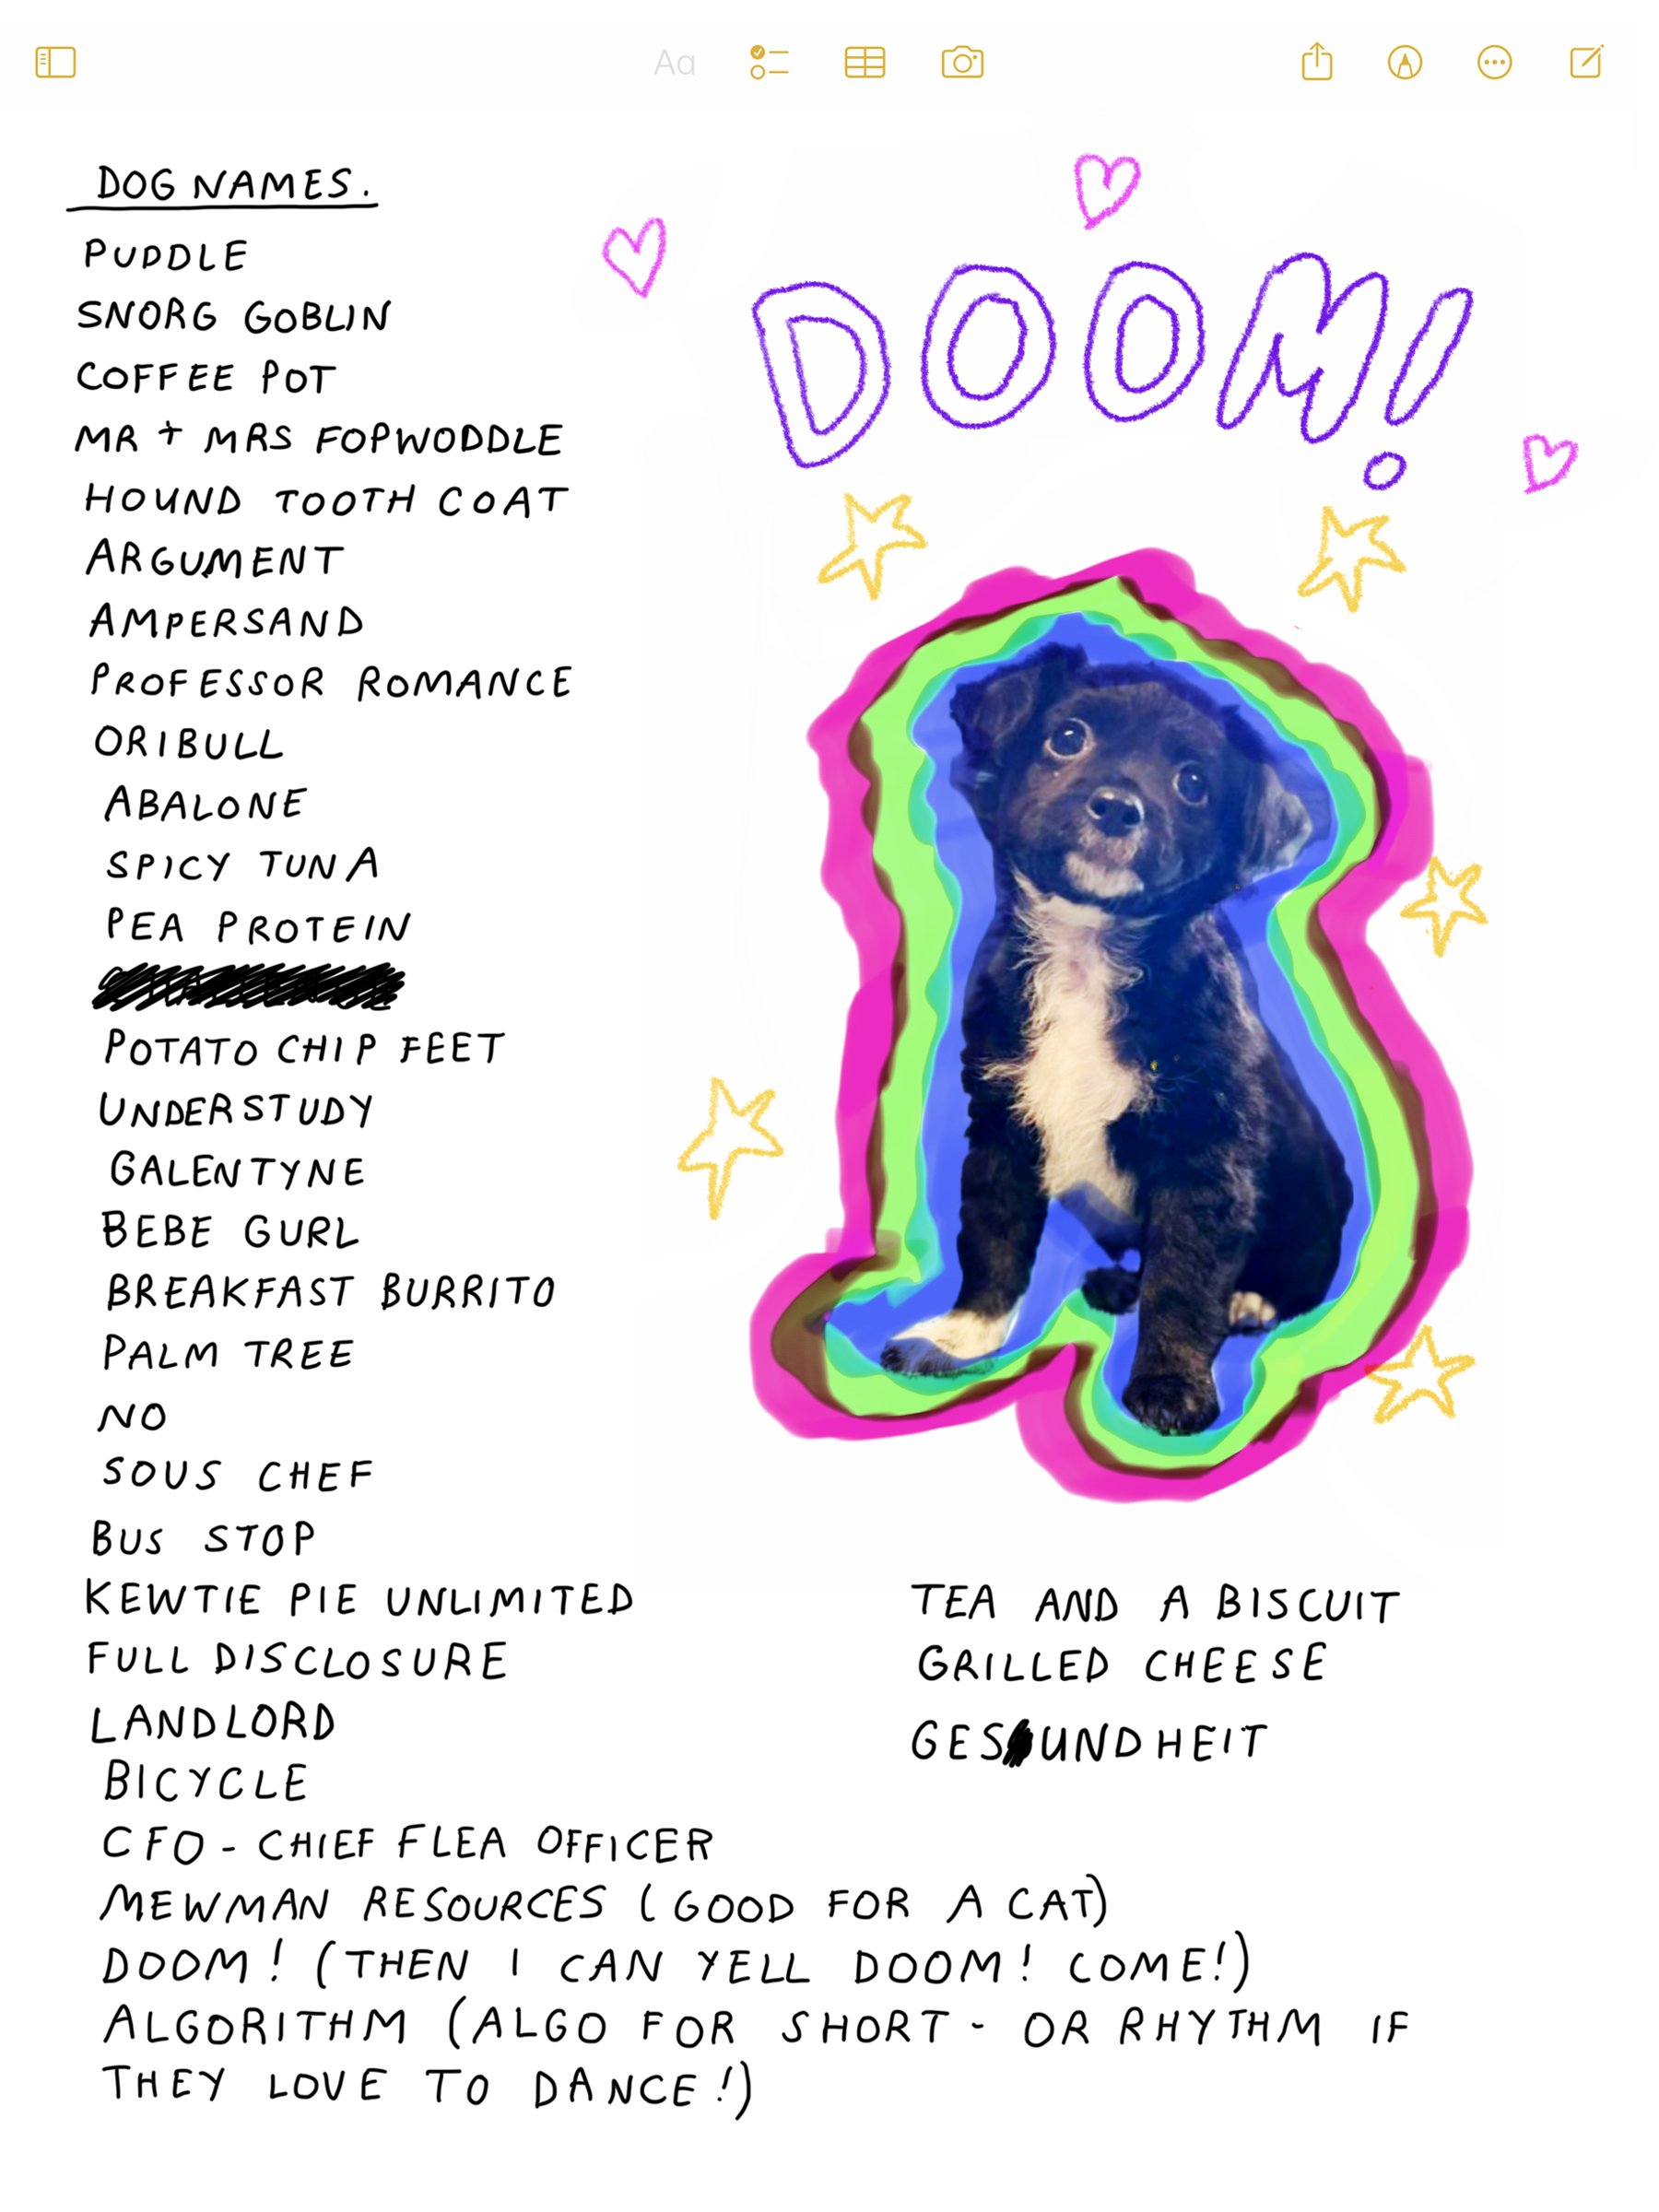 Aa
DOG NAMES.
PUDDLE
SNORG GOBLIN
COFFEE POT
MR + MRS FOPWODDLE
HOUND TOOTH COAT
ARGUMENT
AMPERSAND
PROFESSOR ROMANCE
ORIBULL
ABALONE
SPICY TUNA
PEA PROTEIN
POTATO CHIP FEET
UNDERSTUDY
GALENTYNE
BEBE GURL
BREAKFAST BURRITO
PALM TREE
NO
SOUS CHEF
BUS STOP
KEWTIE PIE UNLIMITED
FULL DISCLOSURE
LANDLORD
BICYCLE
CFO - CHIEF FLEA OFFICER
MEWMAN RESOURCES (GOOD FOR A CAT)
DOOM! (THEN I CAN YELL DOOM! COME!)
ALGORITHM (ALGO FOR SHORT - OR RHYTHM IF
THEY LOVE TO DANCE!)
DOOM!
TEA AND A BISCUIT
GRILLED CHEESE
GESUNDHEIT